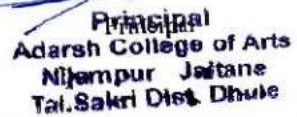 Principal
Principal
Adarsh College of Arts
Nijampur Jaitane
Tal.Sakri Dist. Dhule